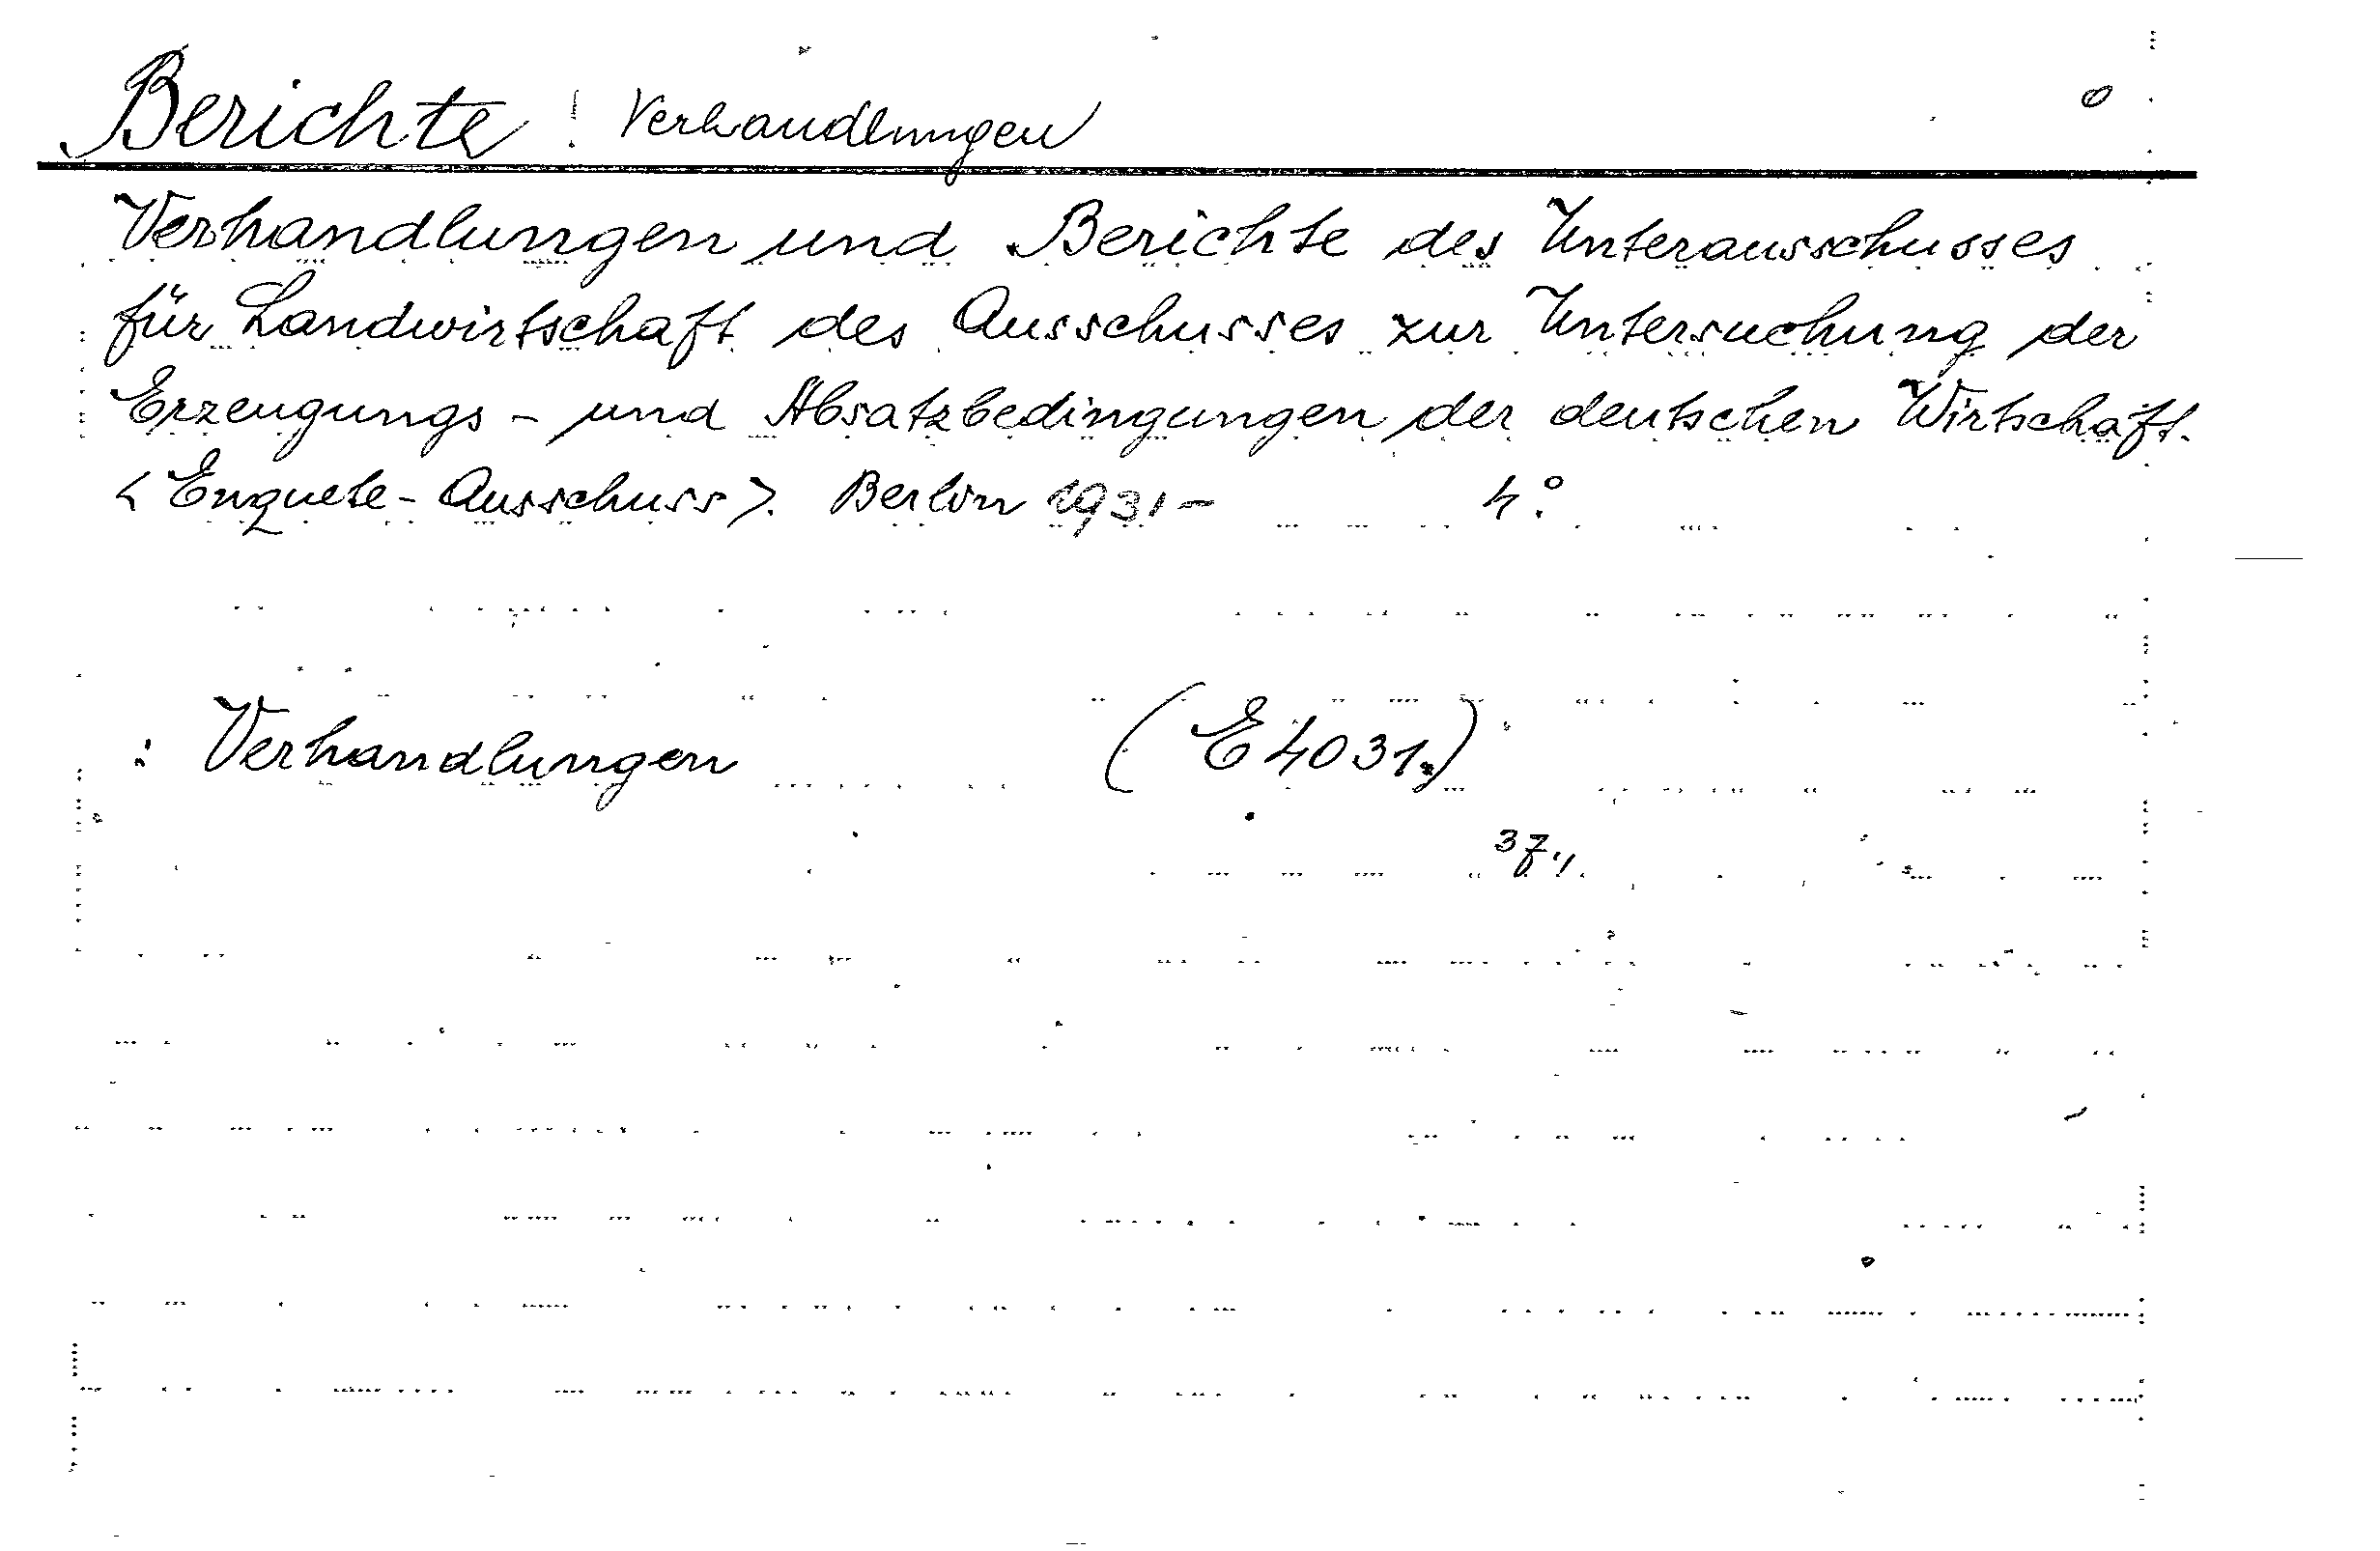 Berichte ! Verhandlungen
Verhandlungen und Berichte des Unterausschusses
für Landwirtschaft des Ausschusses zur Untersuchung der
Erzeugungs- und Absatzbedingungen der deutschen Wirtschaft.
<Enquete-Ausschuss>. Berlin 1931- 4°.
: Verhandlungen (E 4031.)